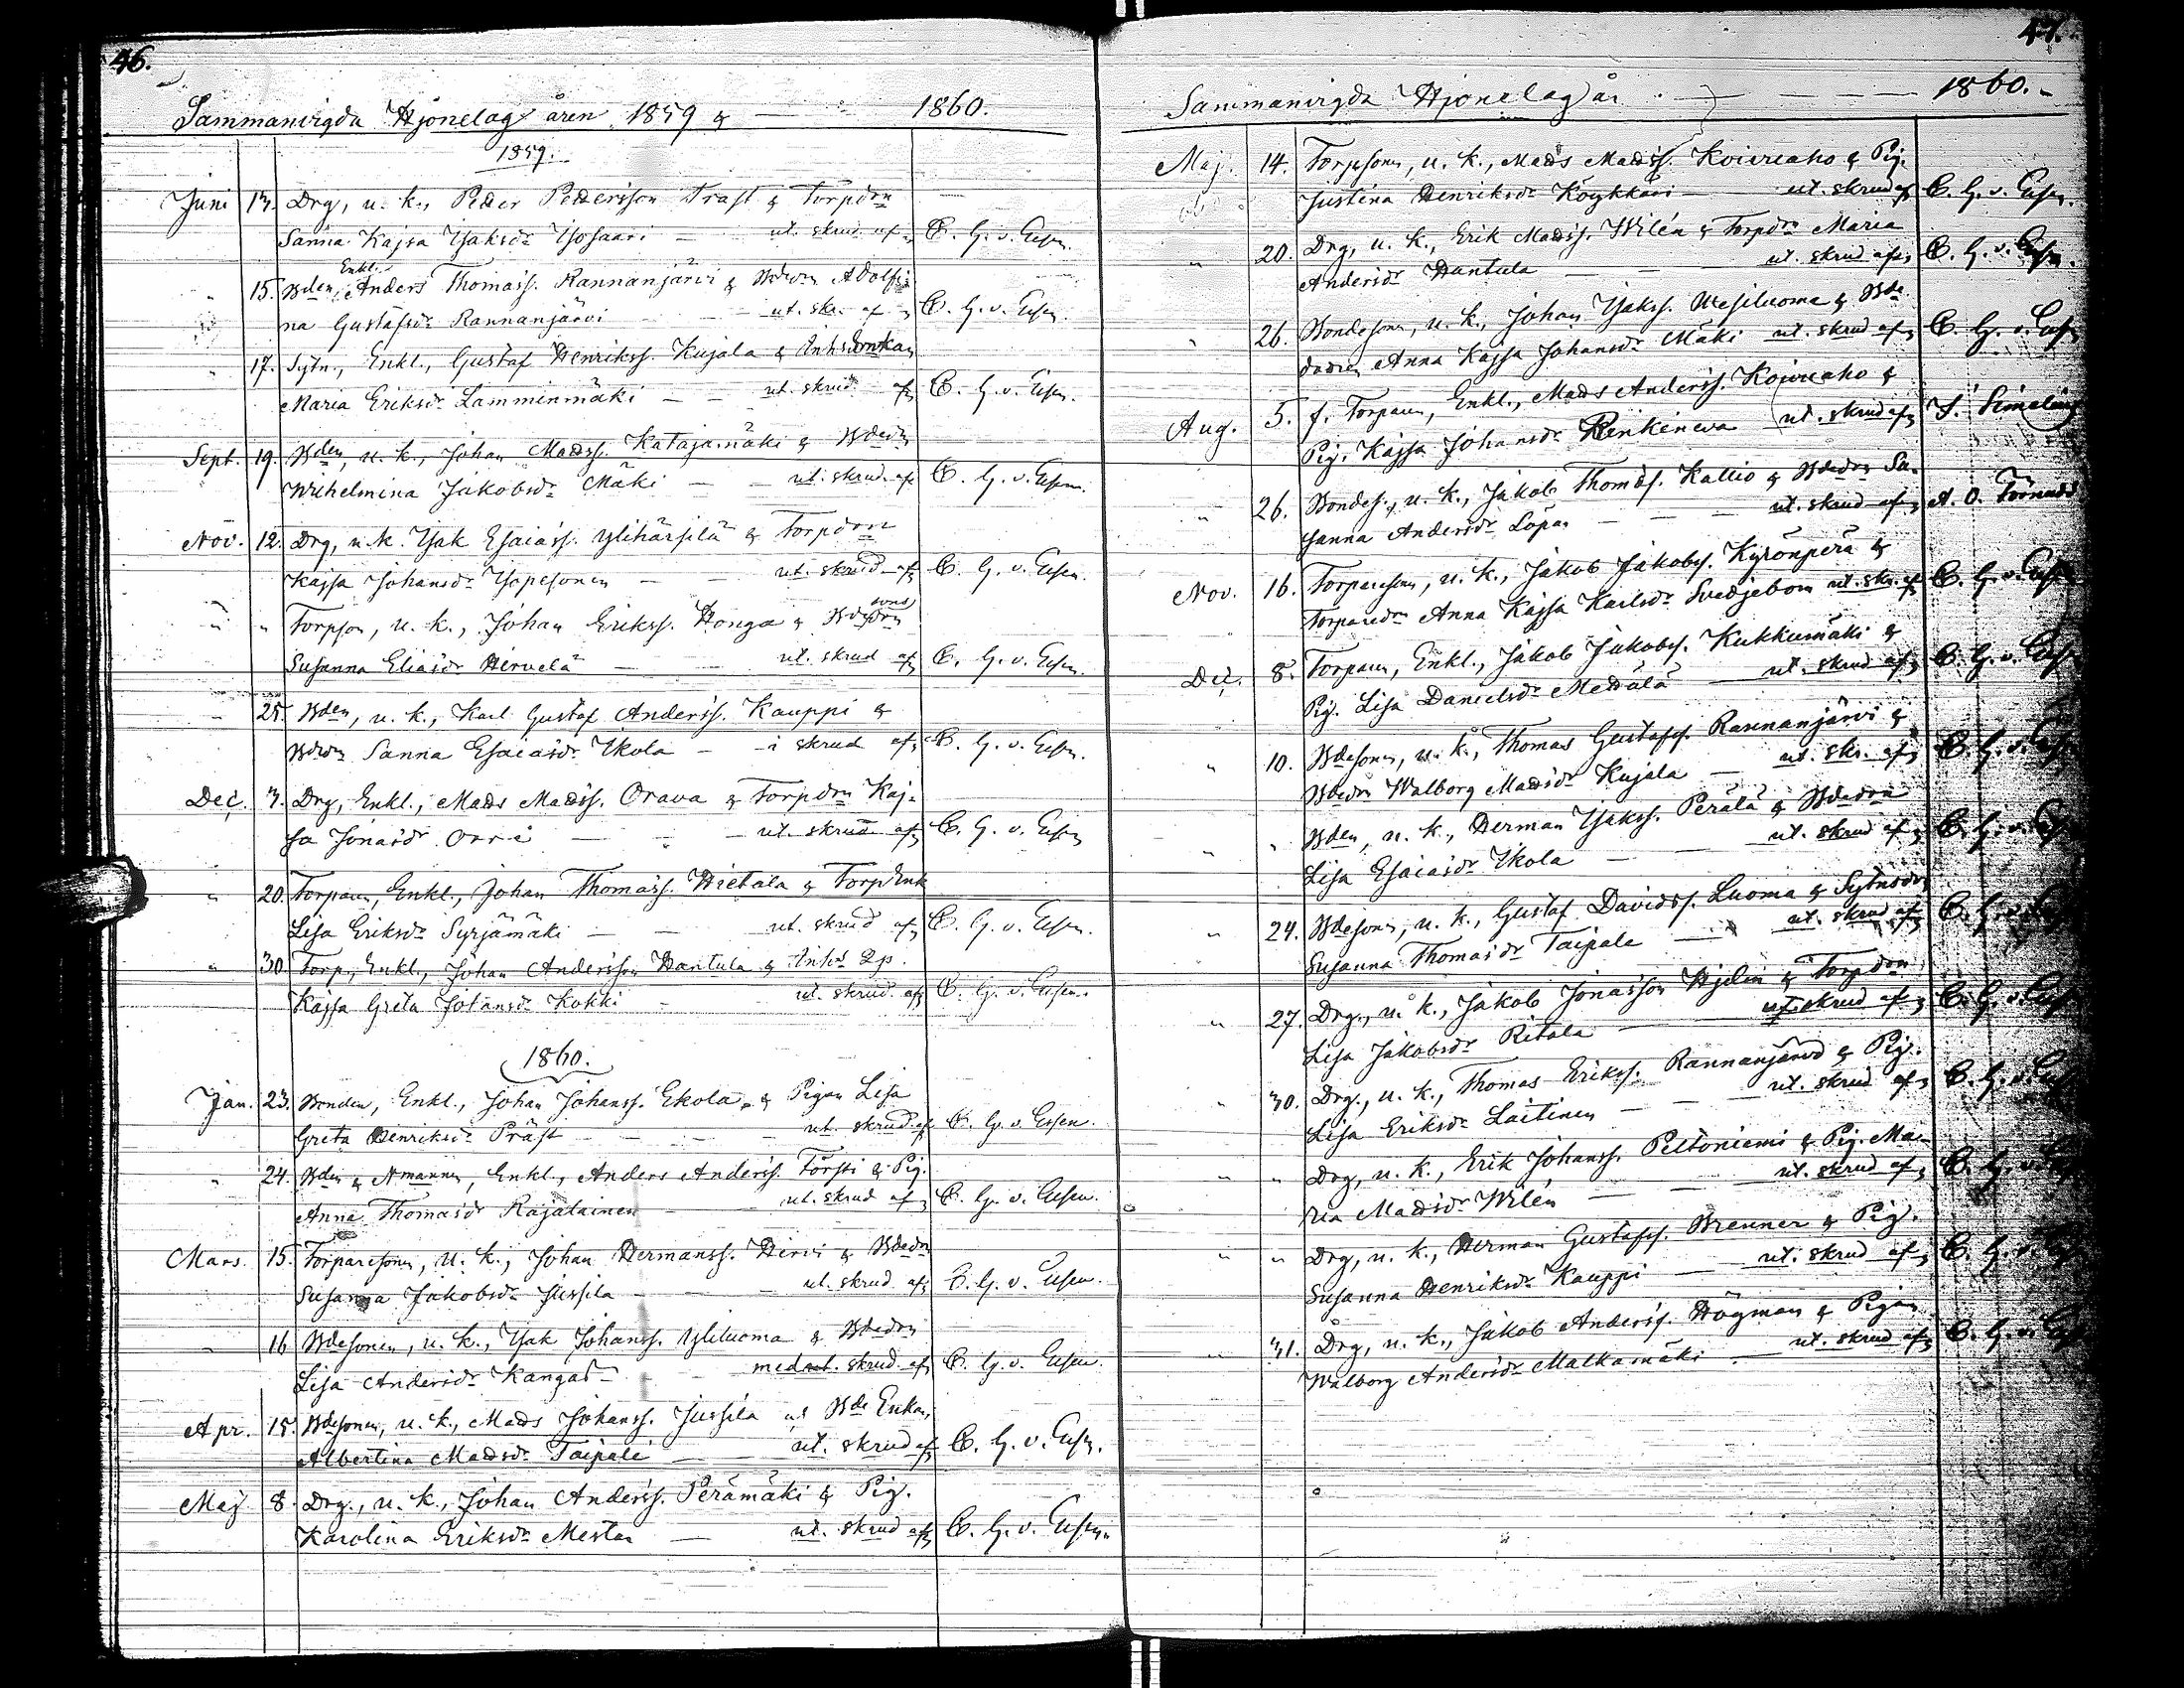 46.
Sammanvigda Hjonelag åren 1859 & 1860.
1859.
Juni 13. Drg, u. k., Peder Pedersson Trast & Torpdrn
Sanna Kajsa Isaksdr Isosaari — ut. skrud af C. G. v. Essen.
" 15. Bden, Enkl. Anders Thomass. Rannanjärvi & Bdedrn Adolfi-
na Gustafsdr Rannanjärvi ut. skr. af C. G. v. Essen.
" 17. Sytn., Enkl., Gustaf Henrikss. Kujala & Inhs Enkan
Maria Eriksdr Lamminmäki — ut. skrud af C. G. v. Essen.
Sept. 19. Bden, u. k., Johan Madss. Katajamäki & Bdedrn
Wilhelmina Jakobsdr Mäki — ut. skrud. af C. G. v. Essen.
Nov. 12. Drg, u. k. Isak Esaiass. Ylihärsilä & Torpdrn
Kajsa Johansdr Isopesonen — ut. skrud af C. G. v. Essen.
" " Torpson, u. k., Johan Erikss. Honga & Bdesonsdrn
Susanna Eliasdr Hirvelä — ut. skrud af C. G. v. Essen.
" 25. Bden, u. k., Karl Gustaf Anderss. Kauppi &
Bdedrn Sanna Esaiasdr Ikola — i skrud af C. G. v. Essen.
Dec. 3. Drg, Enkl., Mads Madss. Orava & Torpdrn Kaj-
sa Jonasdr Orri — ut. skrud af C. G. v. Essen
" 20. Torparn, Enkl., Johan Thomass. Hietala & TorpEnk
Lisa Eriksdr Syrjämäki — ut. skrud af C. G. v. Essen.
" 30 Torp., Enkl., Johan Andersson Hantula & Inhs Qp.
Kajsa Greta Johansdr Kokki — ut. skrud af C. G. v. Essen.
1860.
Jan. 23. Bonden, Enkl., Johan Johanss. Ekola, & Pigan Lisa
Greta Henriksdr Präst — ut. skrud af C. G. v. Essen.
" 24. Bden & Nmannen, Enkl., Anders Anderss. Försti & Pig.
Anna Thomasdr Rajalainen — ut. skrud af C. G. v. Essen.
Mars. 15. Torparesonen, u. k., Johan Hermanss. Hirvi & Bdedrn
Susanna Jakobsdr Jussila — ut. skrud af C. G. v. Essen.
" 16 Bdesonen, u. k., Isak Johanss. Yliluoma & Bdedrn
Lisa Andersdr Kangas — med skrud af C. G. v. Essen.
Apr. 15. Bdesonen, u. k., Mads Johanss. Jussila & Bde Enkan,
Albertina Madsdr Taipale — ut. skrud af C. G. v. Essen.
Maj 8. Drg., u. k., Johan Anderss. Perämäki & Pig.
Karolina Eriksdr Mestar — ut. skrud af C. G. v. Essen.
47.
Sammanvigda Hjonelag år — 1860.
Maj. 14. Torpsonen, u. k., Mads Madss. Koivuaho & Pig.
Justina HenriksdrKöykkäri — ut. skrud af C. G. v. Essen.
" 20. Drg, u. k., Erik Madss. Wilén & Torpdr Maria
Andersdr Hantula — ut. skrud af C. G. v. Essen.
" 26. Bondesonen, u. k., Johan Isakss. Wesiluoma & Bde
dotren Anna Kajsa Johansdr Mäki ut. skrud af C. G. v. Essen
Aug. 5. f. Torparen, Enkl., Mads Anderss. Koivuaho &
Pig. Kajsa Johansdr Renkineva ut. skrud af J. Simelius
" 26. Bondes., u. k., Jakob Thomass. Kallio & Bdedrn Su-
sanna Andersdr Löpar — ut. skrud af A. O. Törnudd
Nov. 16. Torparesonen, u. k., Jakob Jakobss. Kyrönperä &
Torparedrn Anna Kajsa Karlsdr Svedjebom ut. skr. af C. G. v. Essen
Dec. 8. Torparen, Enkl., Jakob Jakobss. Kukkumäki &
Pig. Lisa Danielsdr Medälä — ut. skrud af C. G. v. Essen
" 10. Bdesonen, u. k., Thomas Gustafss. Rannanjärvi &
Bdedrn Walborg Madsdr Kujala — ut. skr. af C. G. v. Essen
" " Bden, u. k., Herman Isakss. Perälä & Bdedrn
Lisa Esaiasdr Ikola — ut. skrud af C. G. v. Essen
" 24. Bdesonen, u. k., Gustaf Davidss. Luoma & Sytnsdrn
Susanna Thomasdr Taipale — ut. skrud af C. G. v. Essen
" 27. Drg., u. k., Jakob Jonasson Hjelm & Torpdrn
Lisa Jakobsdr Ritola — ut. skrud af C. G. v. Essen
" 30. Drg., u. k., Thomas Erikss. Rannanjärvi & Pig.
Lisa Eriksdr Laitinen — ut. skrud af C. G. v. Essen
" " Drg, u. k., Erik Johanss. Peltoniemi & Pig. Ma-
ria Madsdr Wilén — ut. skrud af C. G. v. Essen
" " Drg, u. k., Herman Gustafss. Brenner & Pig.
Susanna Henriksdr Kauppi — ut. skrud af C. G. v. Essen
" 31. Drg, u. k., Jakob Anderss. Högman & Pigan
Walborg Andersdr Malkamäki — ut. skrud af C. G. v. Essen